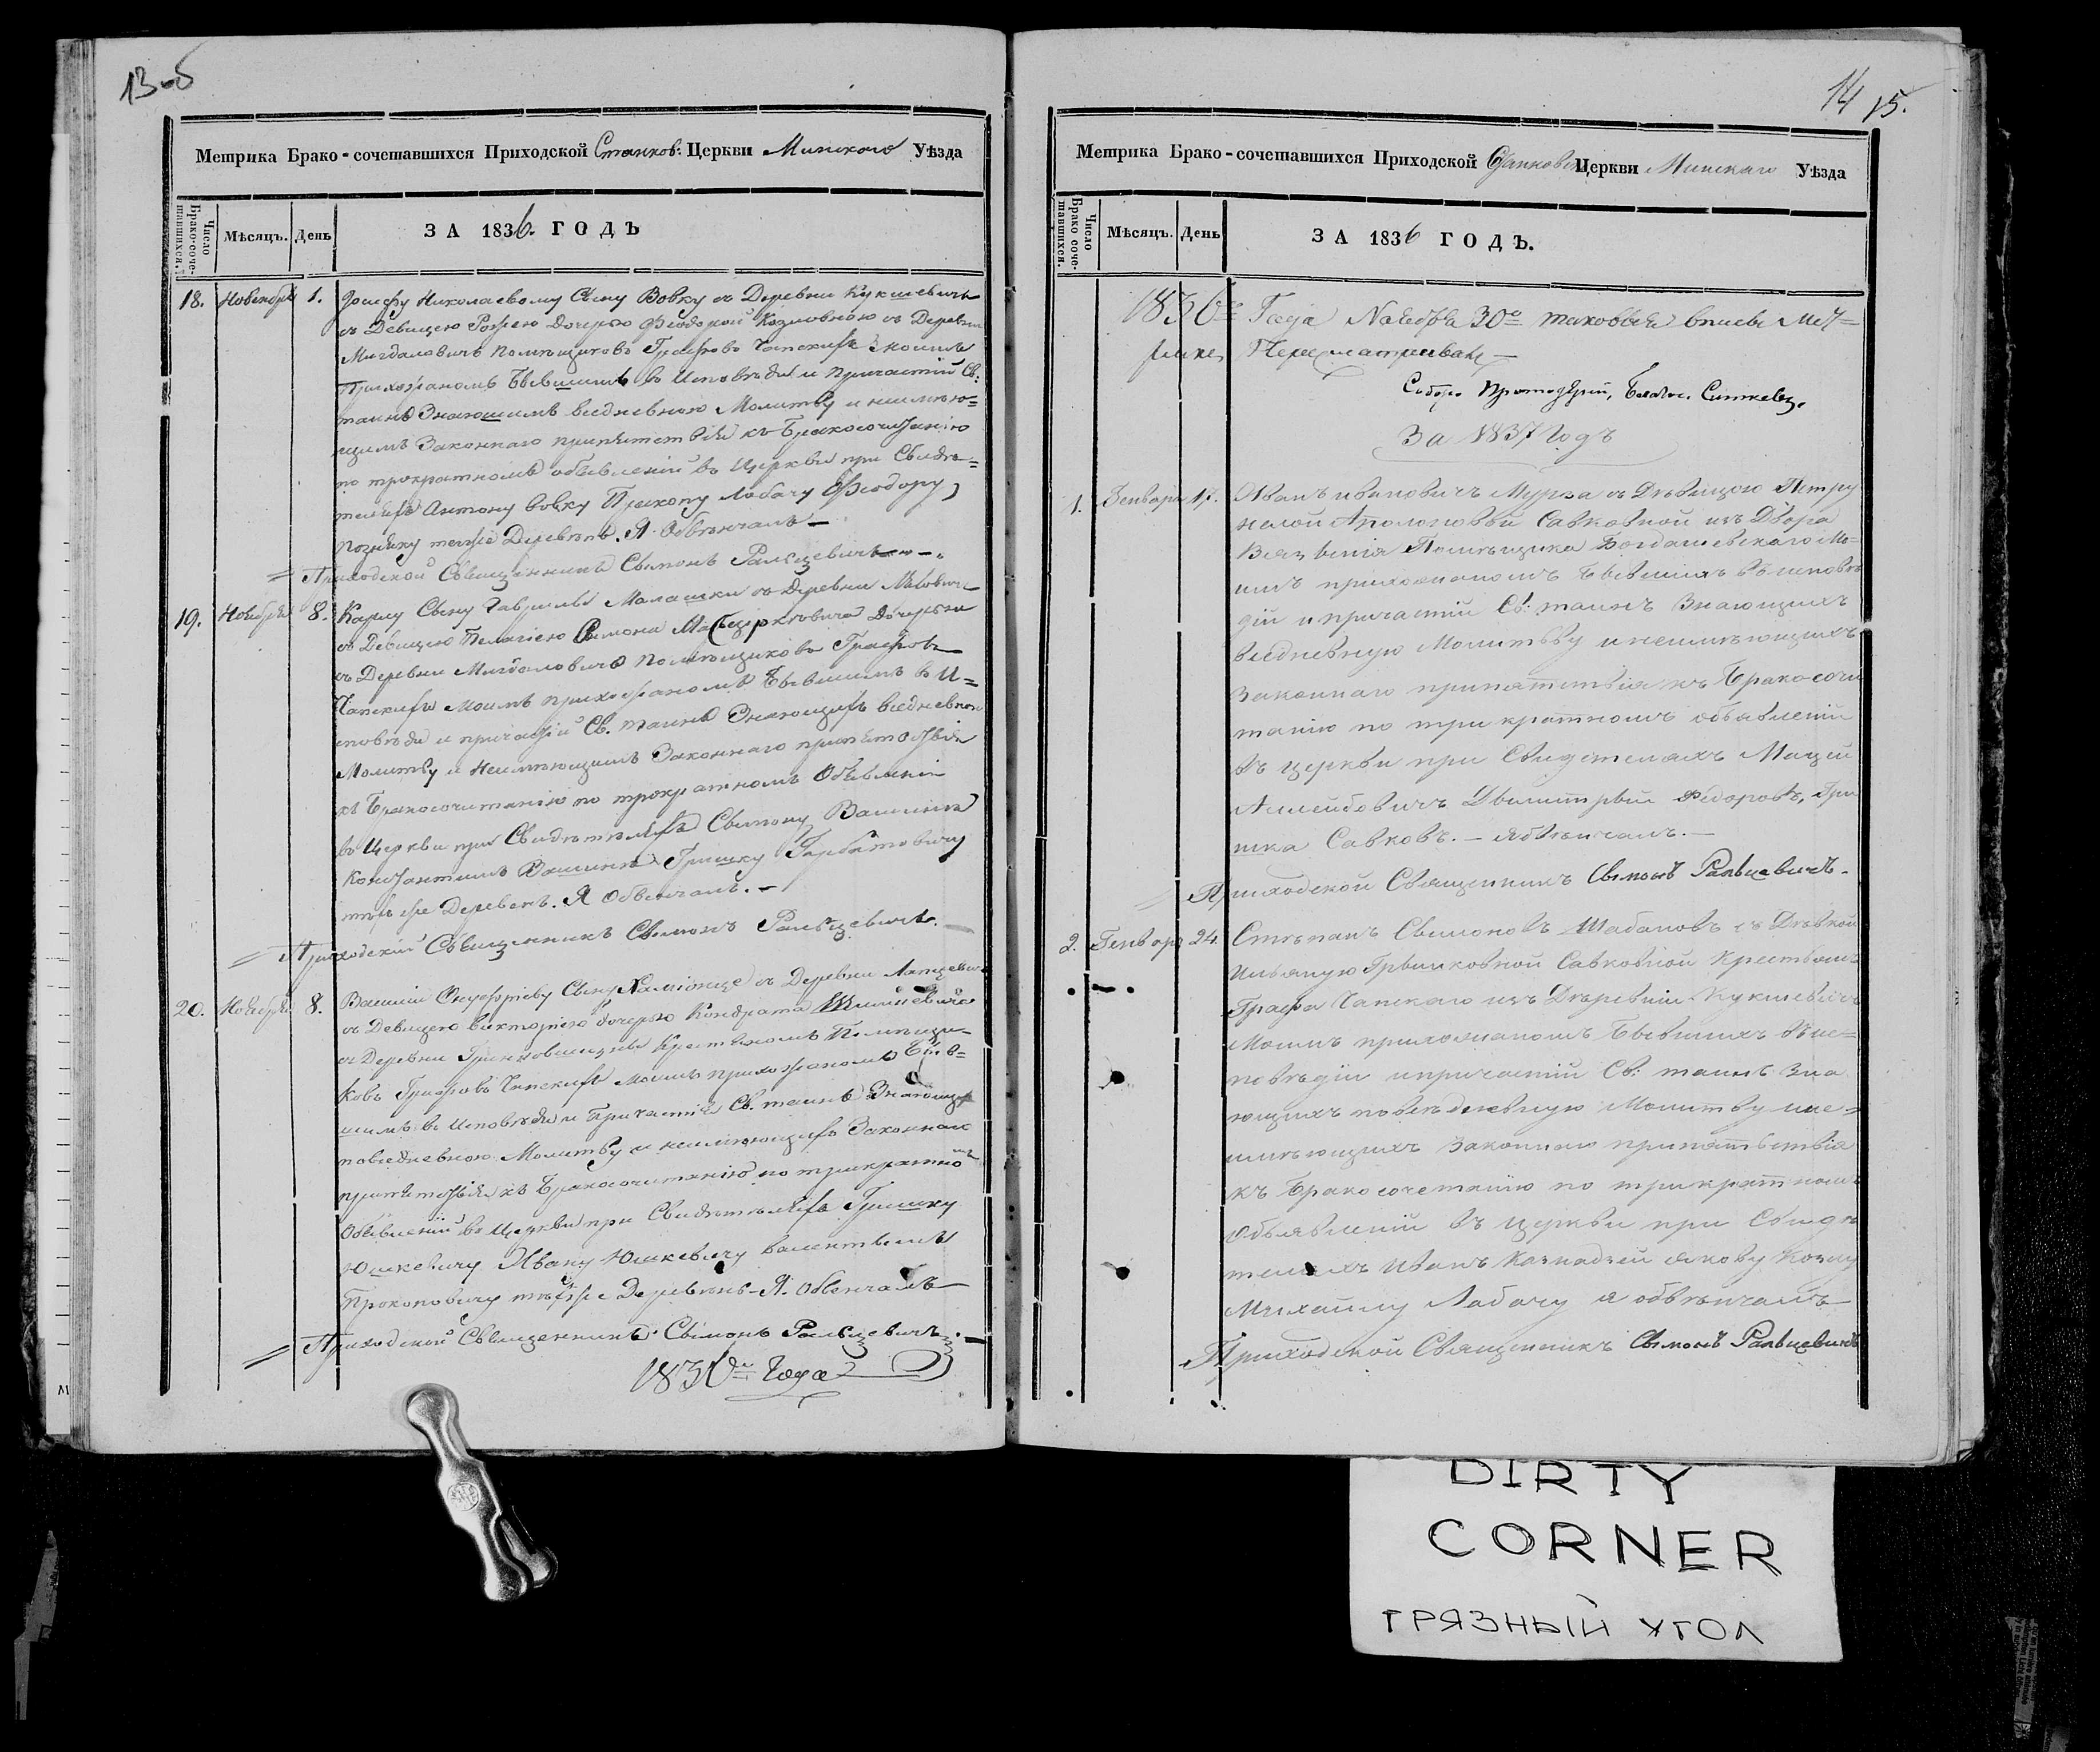 13-б
Метрика Брако-сочетавшихся Приходской Станков: Церкви Минского Уѣзда
Число Брако-соче-тавшихся.
Мѣсяцъ.
День
ЗА 1836. ГОДЪ
18. Новембря 1. Іосифу Николаевому Сыну Вовку съ Деревни Кукшевичъ
съ Девицею дочерью Козловною съ Деревни
Мигдаловичъ помѣщиковъ Графовъ Чапскихъ
Прихожаномъ Бывшимъ въ Исповѣди и Причастій Св:
таинъ Знающимъ вседневною Молитву и неимѣю=
щимъ Законнаго препятствія къ Бракосочитанію
по трократномъ объвленій въ Церкви при Свидѣ=
телехъ Антону Вовку Прокопу Лобачу Феодору
Позняку Деревень. Я Обвѣнчалъ —
= Приходской Священникъ Сымонъ Ральцевичъ
19. Ноября 8. Карлу Сыну Гаврилы Малашки съ Деревни
съ Девицею Пелагіею Сымона Дочерью
съ Деревни Мигдаловичъ помѣщиковъ Графовъ
Чапскихъ моимъ прихожаномъ Бывшимъ въ И=
сповѣди и причастій Св. таинъ Знающихъ вседневною
Молитву и Неимѣющимъ Законнаго препятствія
къ Бракосочитанію по трократномъ Объвленій
въ Церкви при Свидѣтелехъ Сымону
Гришку Горбатовичу
Деревень. Я Обвенчалъ. —
= Приходскій Священникъ Сымонъ Ральцевичъ.
20. Ноября 8. Василій Онуфріеву Сыну съ Деревни
съ Девицею Викторіею дочерью Кондрата
съ Деревни Крестьяномъ Помѣщи-
ковъ Графовъ Чапскихъ моимъ прихожаномъ Быв=
шимъ въ Исповѣди и Причастія Св. таинъ Знающихъ
повседневною Молитву и неимѣющихъ Законнаго
препятствія къ Бракосочитанію по трикратномъ
Объвленій въ Церкви при Свидѣтеляхъ Гришку
Юшкевичу Ивану Юшкевичу
Прокоповичу Деревень - Я. Обвенчалъ
= Приходской Священникъ Сымонъ Ральцевичъ.
1836го Года
14 15.
Метрика Брако-сочетавшихся Приходской Станковс Церкви Минскаго Уѣзда
Число Брако соче-тавшихся.
Мѣсяцъ.
День
ЗА 1836 ГОДЪ.
1836го Года Ноября 30го таковыя Мет=
рики Пересматривалъ —
Соборо Протоіерій, Благоч. Ситкевъ.
За 1837 Годъ
1. Генваря 17. Иванъ Ивановичъ Мурза съ Дѣвицою Петру
нелой Аполоновой Савковной изъ Двора
Помѣщика Богдашевскаго Мо-
имъ прихожаномъ Бывшихъ въ исповѣ
дій и причастій Св: таинъ Знающихъ
вседневную Молитву и неимѣющихъ
Законнаго препятствія къ Бракосоче
танію по трикратномъ объявленій
въ церкви при Свидетеляхъ Мацей
Дымитрый Федоровъ, Гри
шка Савковъ. — я обвѣнчалъ. —
= Приходской Священникъ Сымонъ Ральцевичъ.
2. Генваря 24. Стѣпанъ Сымоновъ Шабановъ съ Дѣвкой
Ильяную Грышковной Савковной Крестьянъ
Графа Чапскаго изъ Дѣревни Кукшевичъ
Моимъ прихожаномъ Бывшихъ въ ис=
повѣдій и причастій Св: таинъ Зна
ющихъ повседневную Молитву и не=
имѣющихъ Законнаго препятствія
къ Бракосочетанію по трикратномъ
Объявленій въ церкви при Свидѣ
телехъ Иванъ Казнадзей Якову Козлу
Михайлу Лабачу я обвѣнчалъ
Приходской Священникъ Сымонъ Ральцевичъ
DIRTY
CORNER
ГРЯЗНЫЙ УГОЛ